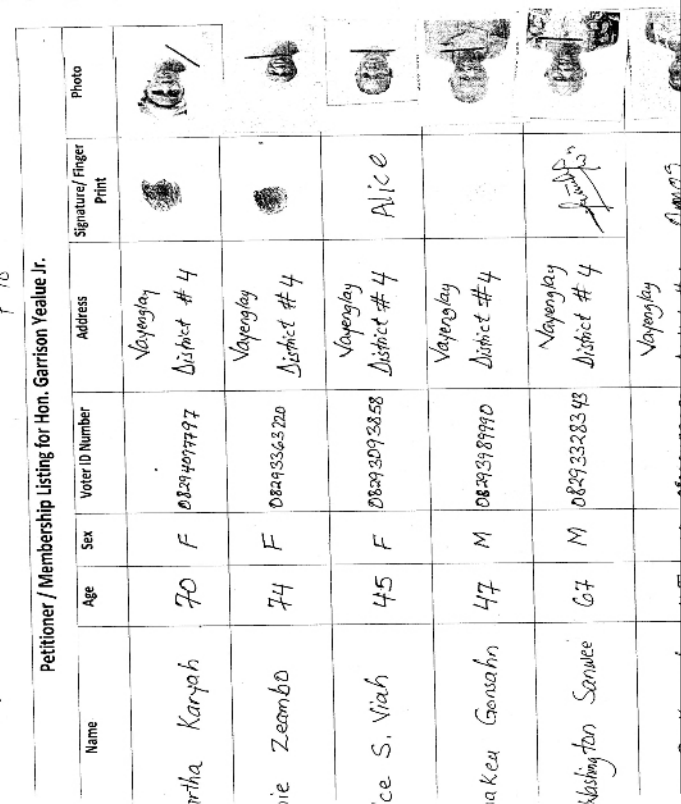 Petitioner / Membership Listing for Hon. Garrison Yealue Jr.
Name Age Sex Voter ID Number Address Signature/ Finger Print Photo
rtha Karyah 70 F 08294097797 Vayenglay District # 4
ie Zeambo 74 F 08293363220 Vayenglay District # 4
ce S. Viah 45 F 08293093858 Vayenglay District # 4 Alice
akeu Gonsahn 47 M 08293989990 Vayenglay District # 4
Washington Sanwee 67 M 08293328343 Vayenglay District # 4
Vayenglay Amos